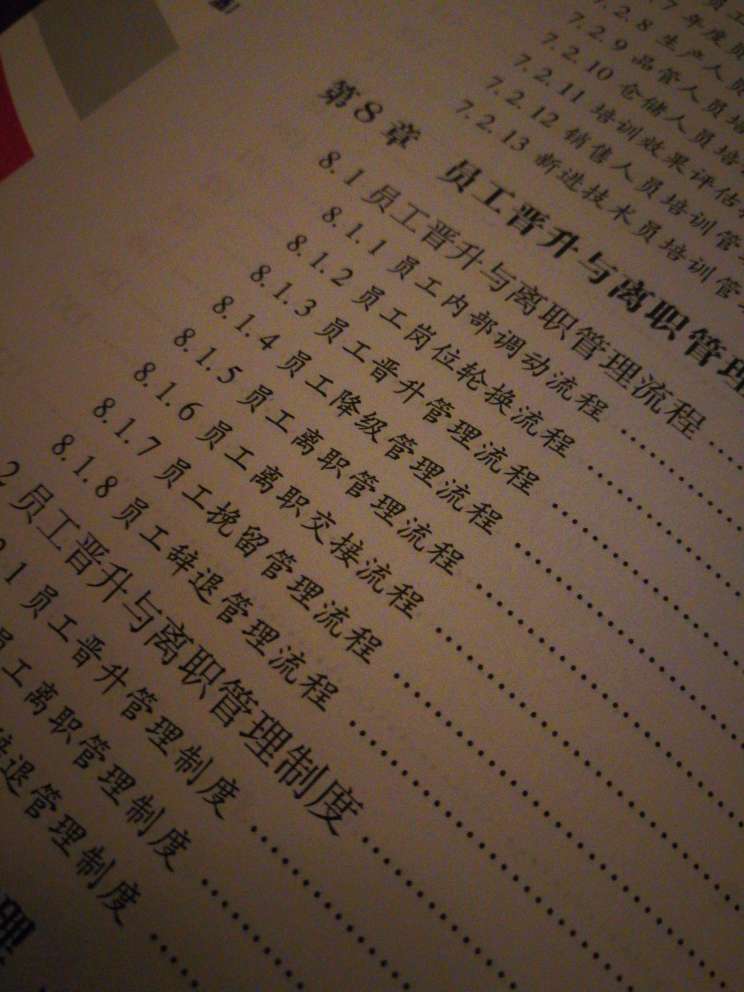 7 年度员
7.2.8 生产人员
7.2.9 品管人员培
7.2.10 仓储人员培
7.2.11 培训效果评估
7.2.12 销售人员培训管
7.2.13 新进技术员培训管
第8章 员工晋升与离职管理
8.1 员工晋升与离职管理流程
8.1.1 员工内部调动流程
8.1.2 员工岗位轮换流程
8.1.3 员工晋升管理流程
8.1.4 员工降级管理流程
8.1.5 员工离职管理流程
8.1.6 员工离职交接流程
8.1.7 员工挽留管理流程
8.1.8 员工辞退管理流程
2 员工晋升与离职管理制度
.1 员工晋升管理制度
员工离职管理制度
退管理制度
理